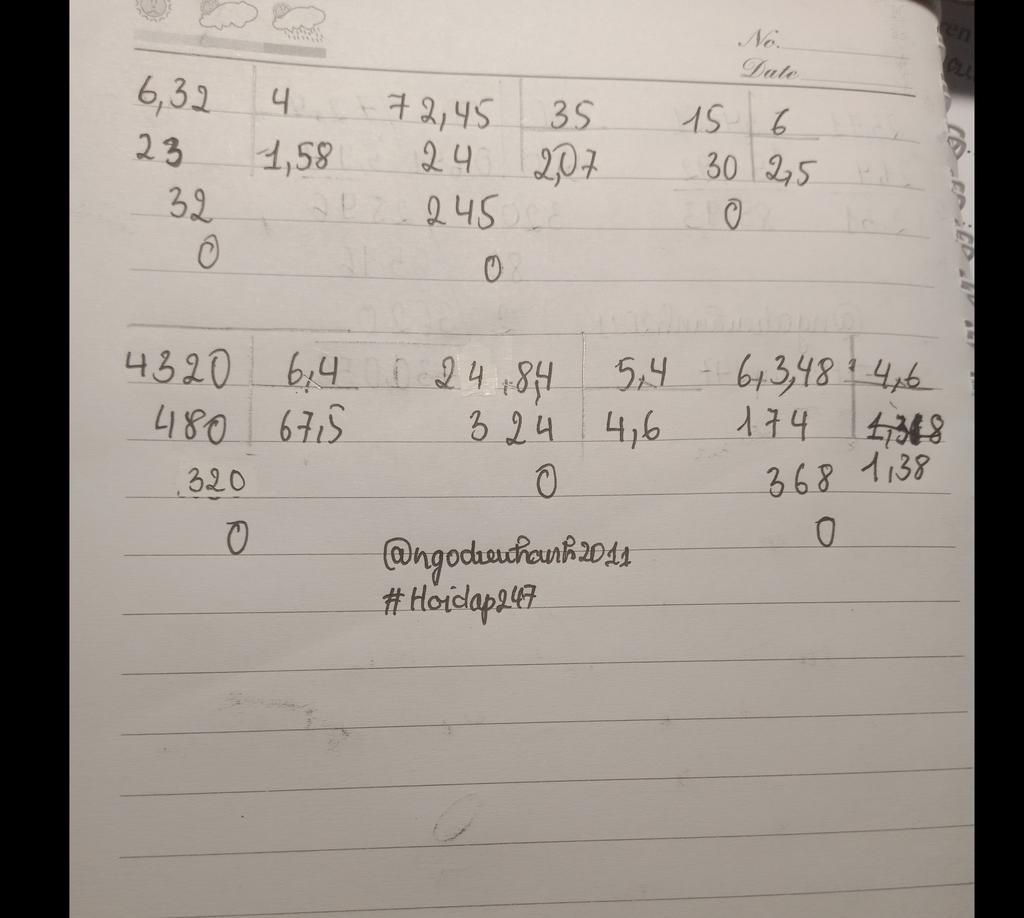 No.
Date
6,32 4 72,45 35 15 6
23 1,58 24 2,07 30 2,5
32 245 0
0 0
4320 6,4 24,84 5,4 6,3,48 4,6
480 67,5 324 4,6 174
320 0 368 1,38
0 0
#Hoidap247